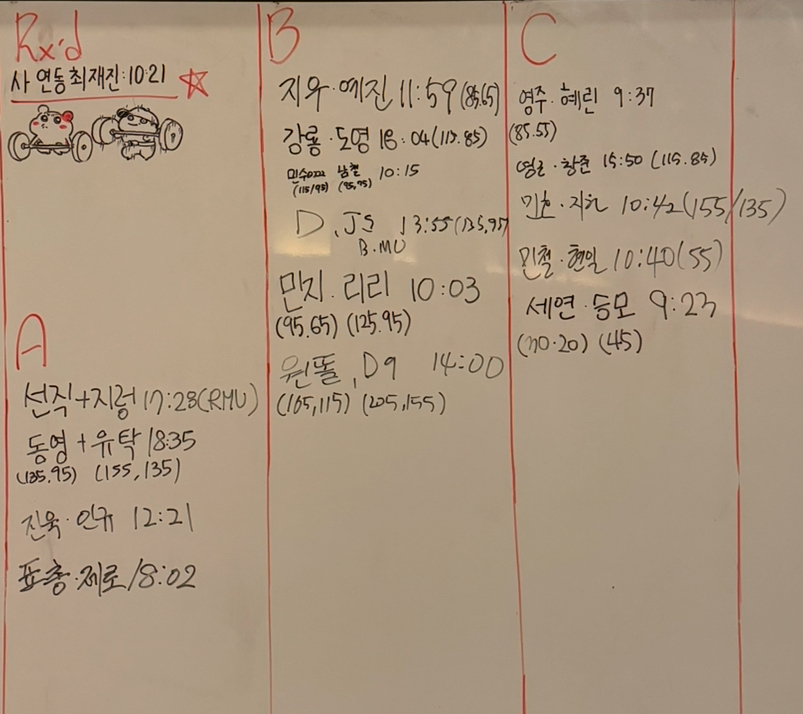 Rx'd
사 연동최재진:10:21
A
선직+지렁 17:28(RMU)
동영+유탁 18:35
(135.95) (155,135)
진욱·인규 12:21
표총·제로 18:02
B
지우·예진 11:59(85.65)
강롱·도영 18:04(115.85)
민수 남철 10:15
(115/95) (95,75)
D.JS 13:55(135,95)
B.MU
민지·리리 10:03
(95.65) (125.95)
원똘,D9 14:00
(165,115) (205,155)
C
영주·혜린 9:37
(85.55)
창준 15:50 (115.85)
10:42(155/135)
민철·현일 10:40(55)
세연·승모 9:23
(45)